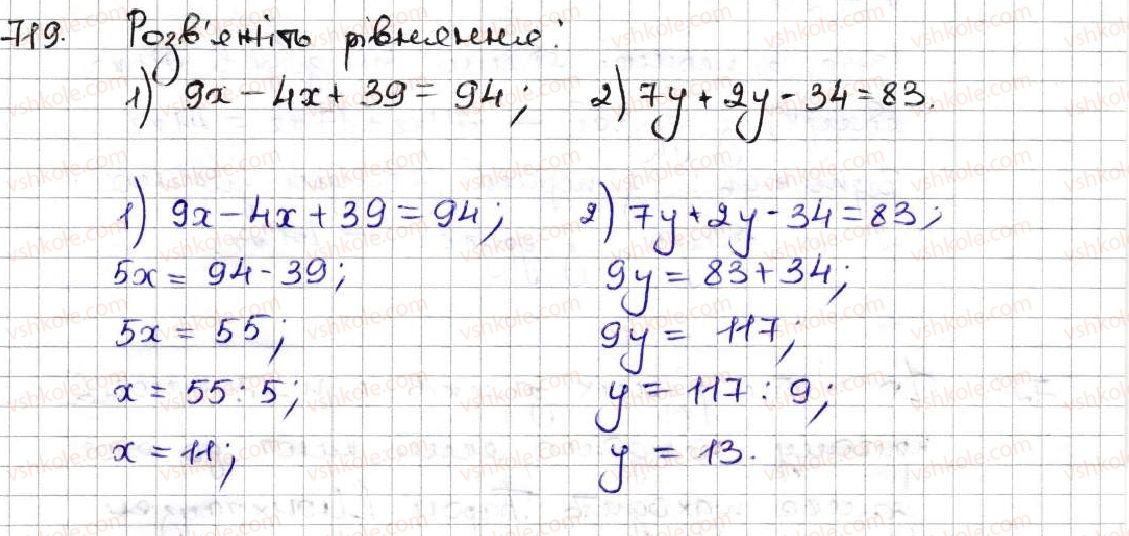 719. Розв'яжіть рівняння:
1) 9x - 4x + 39 = 94; 2) 7y + 2y - 34 = 83.
1) 9x - 4x + 39 = 94;
5x = 94 - 39;
5x = 55;
x = 55 : 5;
x = 11;
2) 7y + 2y - 34 = 83;
9y = 83 + 34;
9y = 117;
y = 117 : 9;
y = 13.
vshkole.com